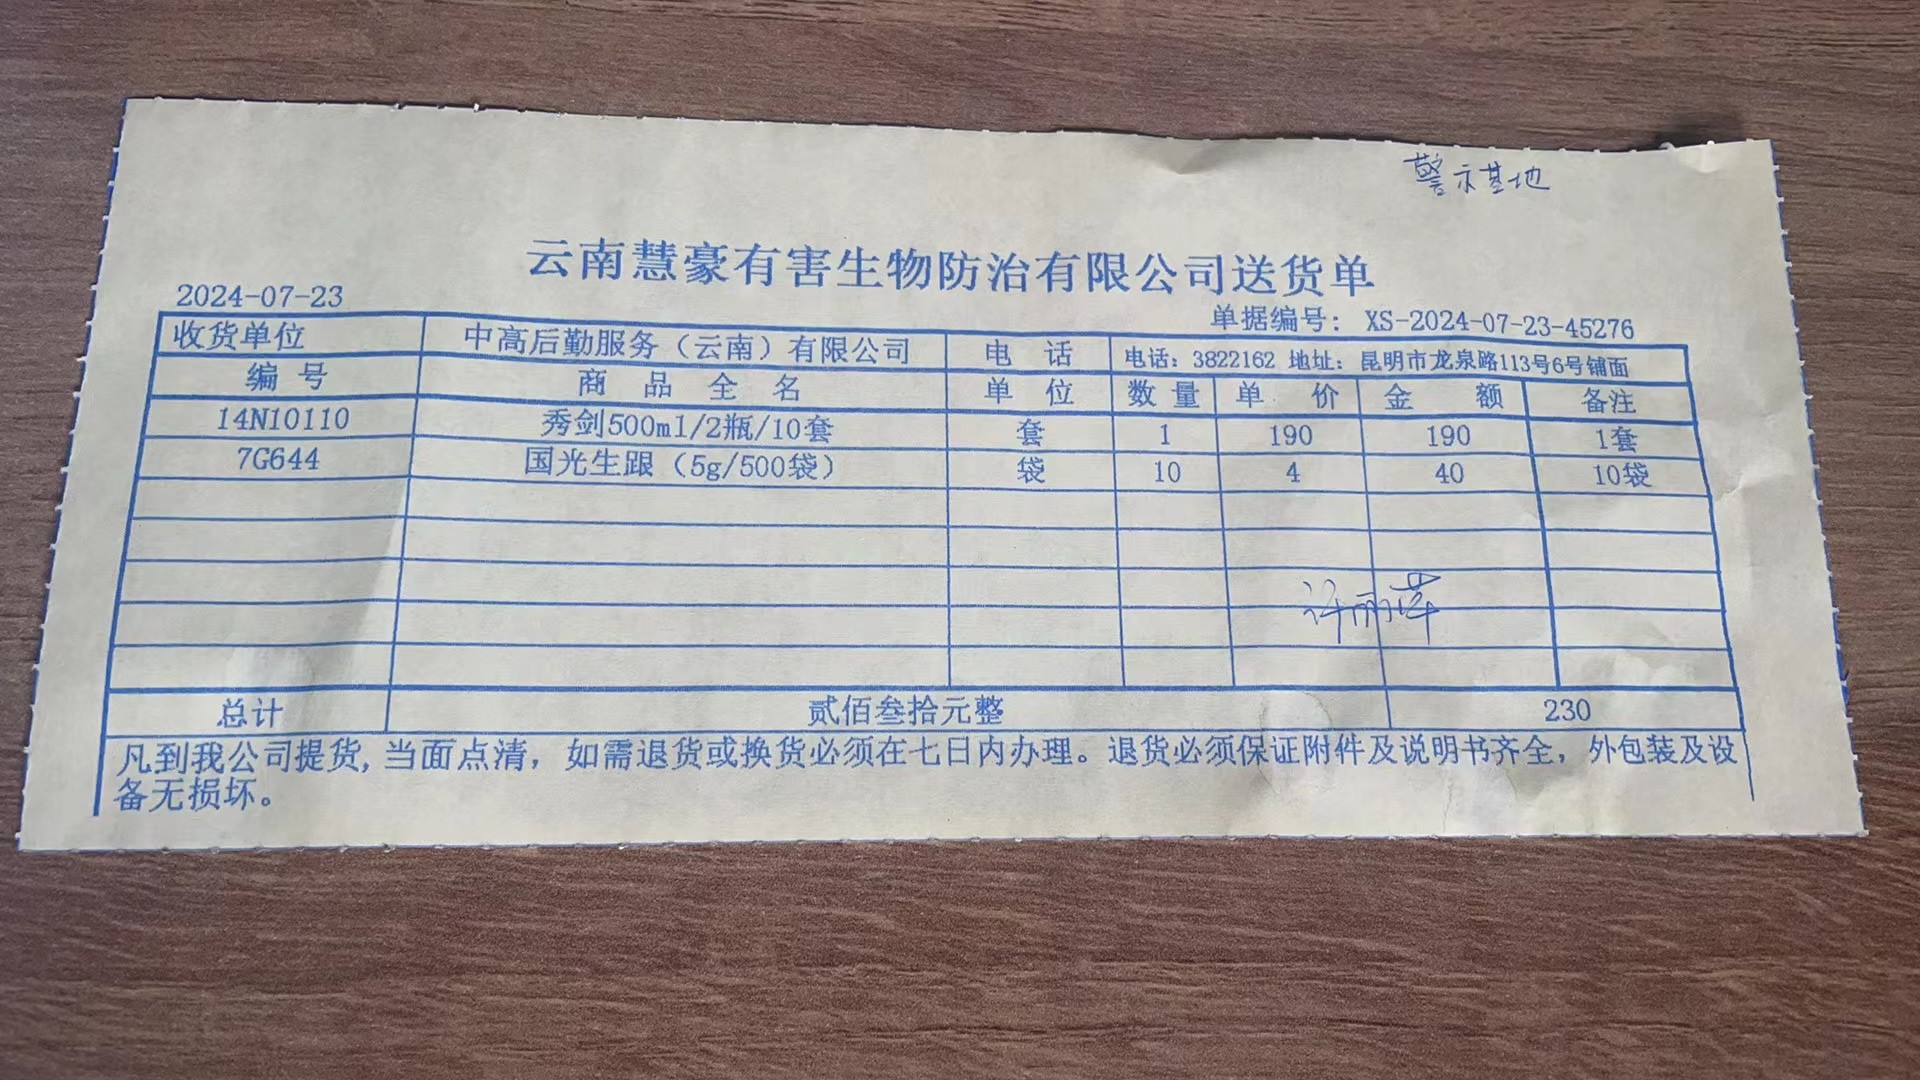 警示基地
云南慧豪有害生物防治有限公司送货单
2024-07-23
单据编号: XS-2024-07-23-45276
收货单位 中高后勤服务（云南）有限公司 电 话 电话: 3822162 地址: 昆明市龙泉路113号6号铺面
编 号 商 品 全 名 单 位 数 量 单 价 金 额 备注
14N10110 秀剑500ml/2瓶/10套 套 1 190 190 1套
7G644 国光生跟（5g/500袋） 袋 10 4 40 10袋
总计 贰佰叁拾元整 230
凡到我公司提货, 当面点清，如需退货或换货必须在七日内办理。退货必须保证附件及说明书齐全，外包装及设
备无损坏。